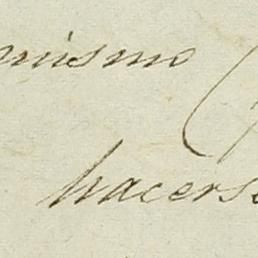 mismo
hacerse